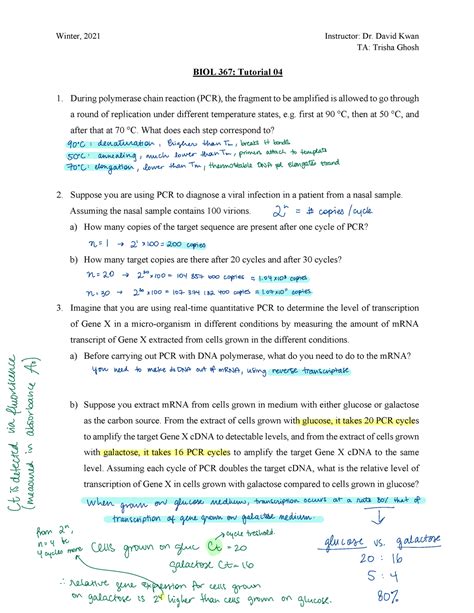 Winter, 2021
Instructor: Dr. David Kwan
TA: Trisha Ghosh
BIOL 367: Tutorial 04
1. During polymerase chain reaction (PCR), the fragment to be amplified is allowed to go through
a round of replication under different temperature states, e.g. first at 90 °C, then at 50 °C, and
after that at 70 °C. What does each step correspond to?
90°C: denaturation, higher than Tm, breaks H bonds
50°C: annealing, much lower than Tm, primers attach to template
70°C: elongation, lower than Tm, thermostable DNA pol elongates
2. Suppose you are using PCR to diagnose a viral infection in a patient from a nasal sample.
Assuming the nasal sample contains 100 virions. 2ⁿ = # copies/cycle
a) How many copies of the target sequence are present after one cycle of PCR?
n=1 → 2¹×100 = 200 copies
b) How many target copies are there after 20 cycles and after 30 cycles?
n=20 → 2²⁰×100 = 104 857 600 copies = 1.04×10⁸ copies
n=30 → 2³⁰×100 = 107 374 182 400 copies = 1.07×10¹¹ copies
3. Imagine that you are using real-time quantitative PCR to determine the level of transcription
of Gene X in a micro-organism in different conditions by measuring the amount of mRNA
transcript of Gene X extracted from cells grown in the different conditions.
a) Before carrying out PCR with DNA polymerase, what do you need to do to the mRNA?
You need to make DNA out of mRNA, using reverse transcriptase
b) Suppose you extract mRNA from cells grown in medium with either glucose or galactose
as the carbon source. From the extract of cells grown with glucose, it takes 20 PCR cycles
to amplify the target Gene X cDNA to detectable levels, and from the extract of cells grown
with galactose, it takes 16 PCR cycles to amplify the target Gene X cDNA to the same
level. Assuming each cycle of PCR doubles the target cDNA, what is the relative level of
transcription of Gene X in cells grown with galactose compared to cells grown in glucose?
When grown on glucose medium, transcription occurs at a rate 80% that of
transcription of gene grown on galactose medium.
Ct is detected via fluorescence
(measured in absorbance
from 2ⁿ,
n = 4
4 cycles more
cycle treshold.
Cells grown on gluc Ct = 20
galactose Ct = 16
∴ relative gene expression for cells grown
on galactose is 2⁴ higher than cells grown on glucose.
glucose vs. galactose
20 : 16
5 : 4
80%